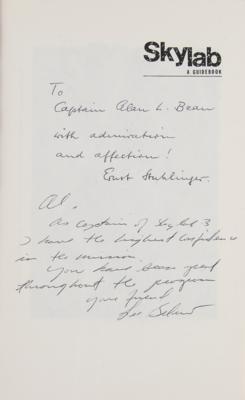 Skylab
A GUIDEBOOK
To
Captain Alan L. Bean
with admiration
and affection!
Ernst Stuhlinger.
Al,
As captain of Skylab 3
I have the highest confidence
in the mission.
You have been great
throughout the program
Your friend